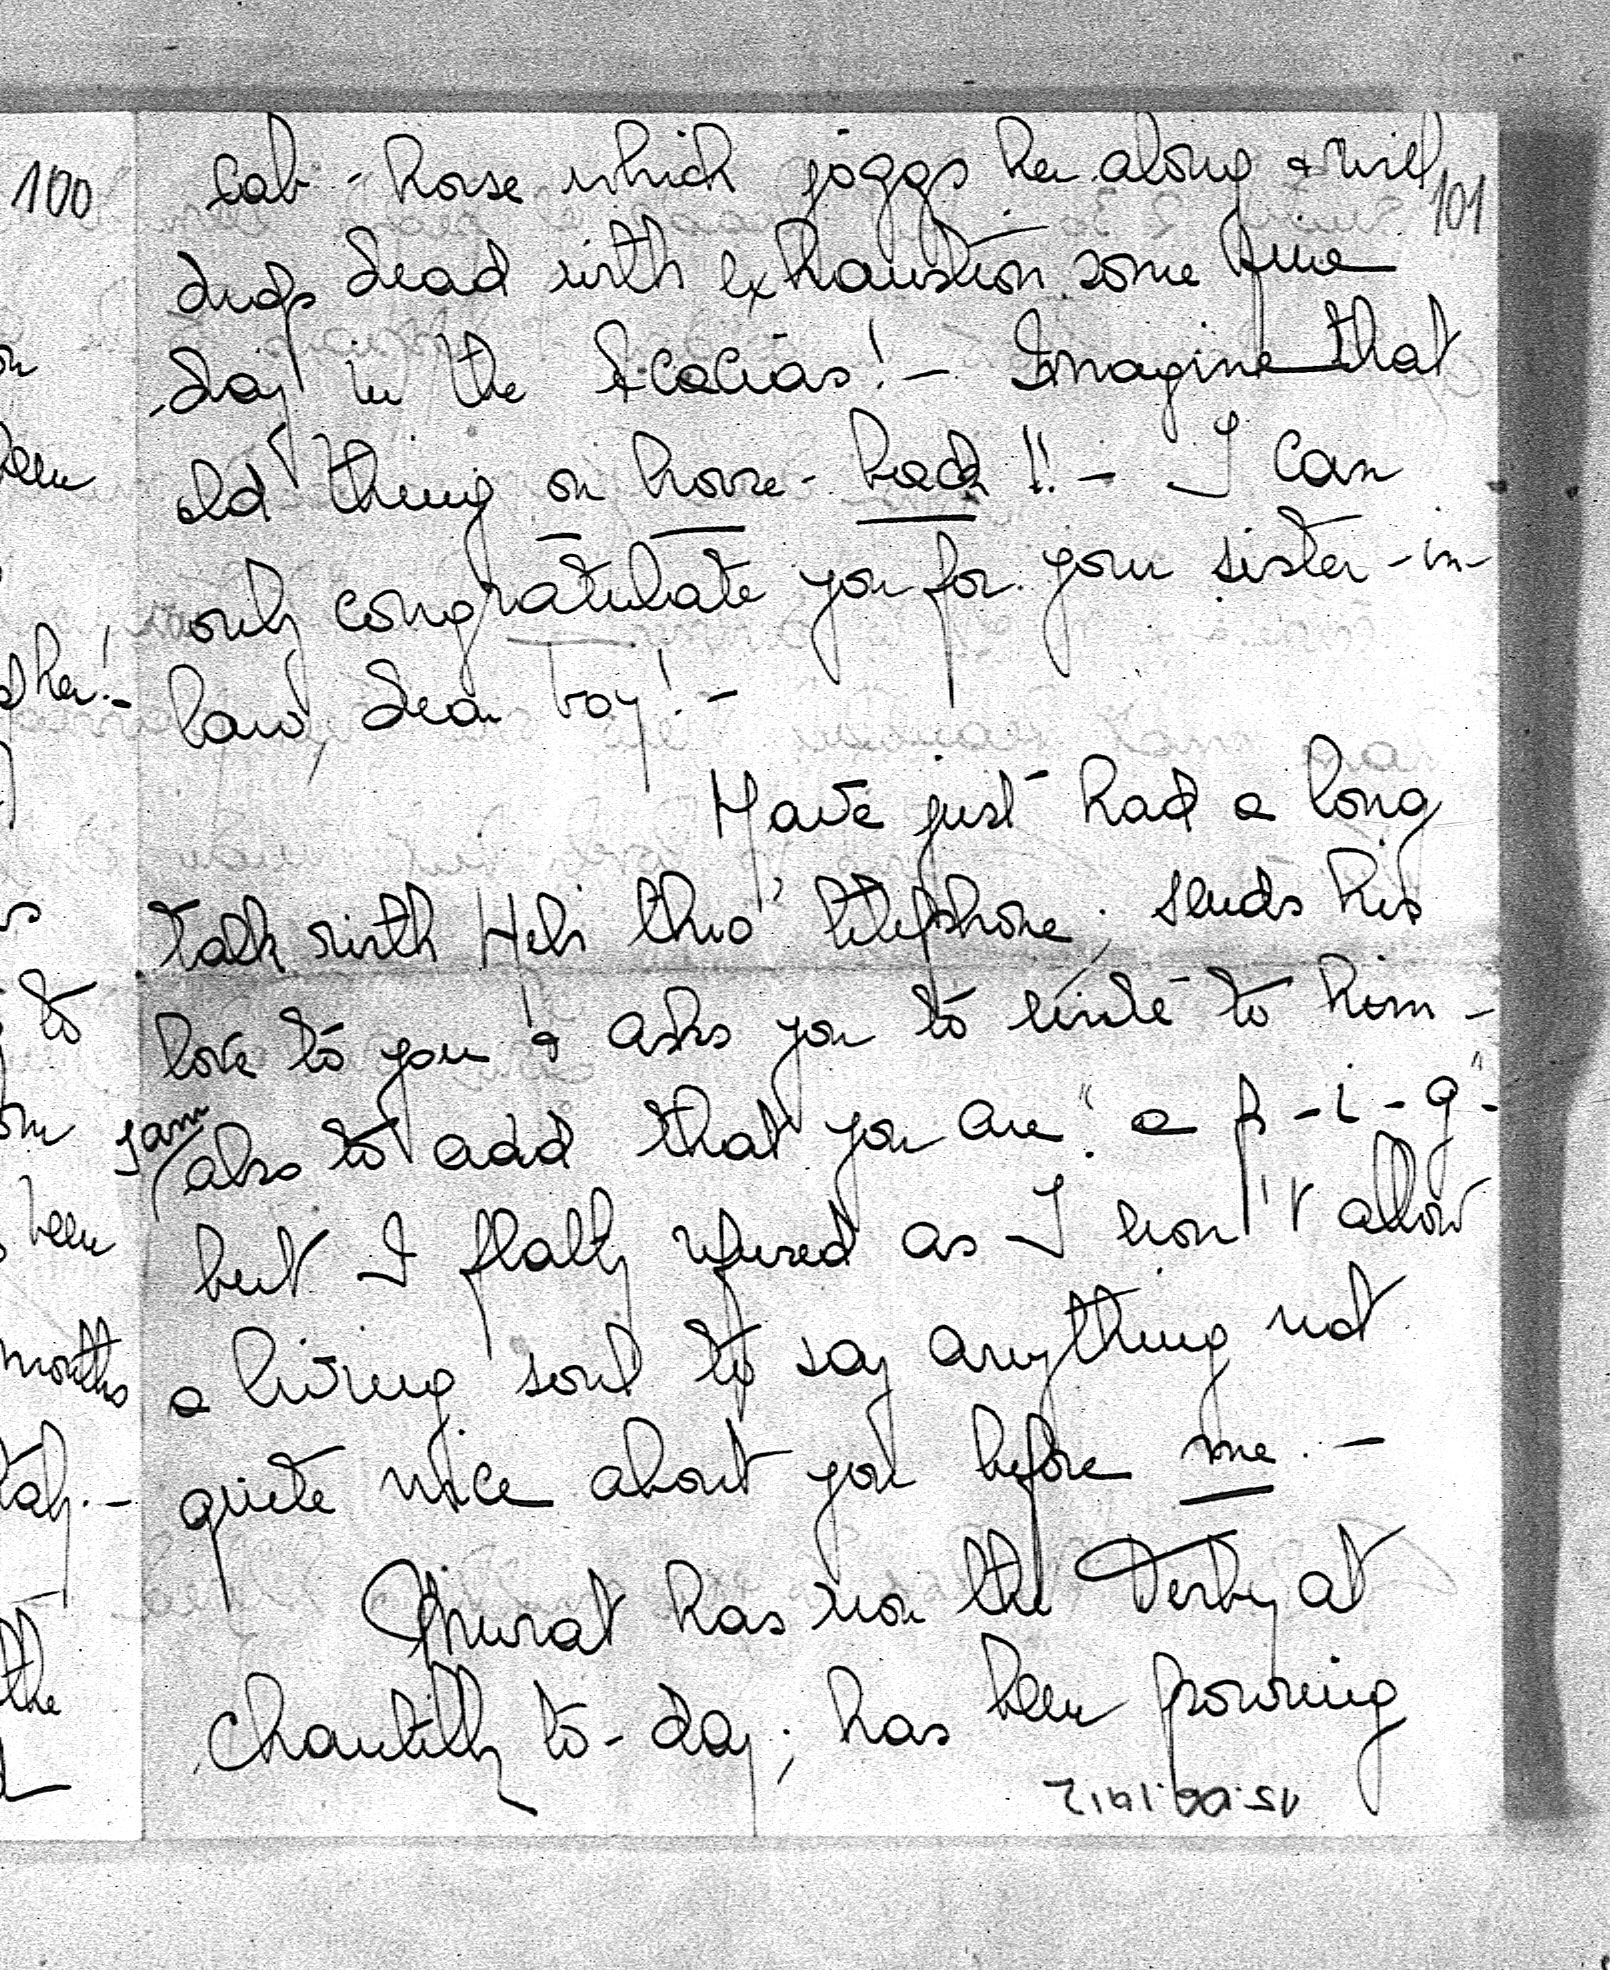 100
101
cab-horse which joggs her along & will
drop dead with exhaustion some fine
day in the Acacias! - Imagine that
old thing on horse-back!! - I can
only congratulate you for your sister-in-
law, dear boy! -
Have just had a long
talk with Heli thro' telephone; sends his
love to you & asks you to write to him -
I am
also to add that you are "a p-i-g" -
but I flatly refused as I won't allow
a living soul to say anything not
quite nice about you before me. -
Murat has won the Derby at
Chantilly to-day; has been
her! -
to
been
months
the